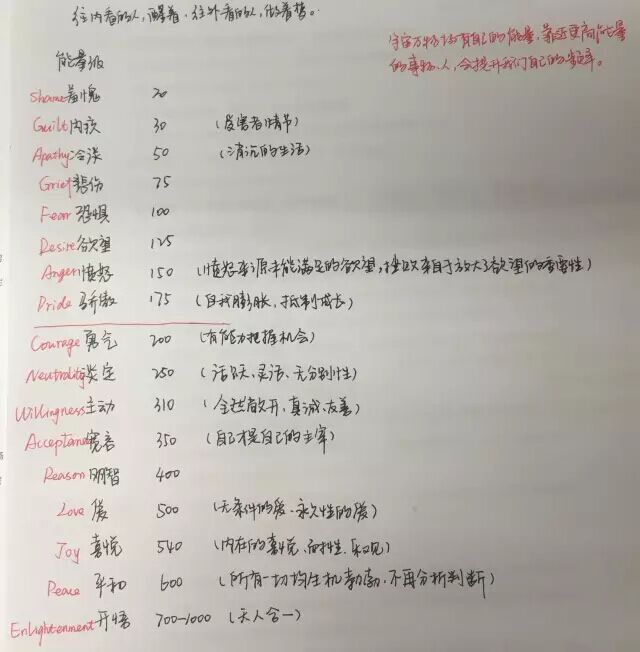 往内看的人,醒着,往外看的人,做着梦。
宇宙万物法有自己的能量,靠近更高能量
的事物、人,会提升我们自己的频率。
能量级
Shame羞愧 20
Guilt内疚 30 (受害者情节)
Apathy冷淡 50 (消沉的生活)
Grief悲伤 75
Fear恐惧 100
Desire欲望 125
Anger愤怒 150 (愤怒来源未能满足的欲望,挫败来自于放大了欲望的重要性)
Pride骄傲 175 (自我膨胀,抵制成长)
Courage勇气 200 (有能力把握机会)
Neutrality淡定 250 (活跃、灵活、无分别性)
Willingness主动 310 (全然敞开,真诚、友善)
Acceptance宽容 350 (自己才是自己的主宰)
Reason明智 400
Love爱 500 (无条件的爱、永久性的爱)
Joy 喜悦 540 (内在的喜悦、耐性、乐观)
Peace 平和 600 (所有一切均生机勃勃,不再分析判断)
Enlightenment开悟 700-1000 (天人合一)